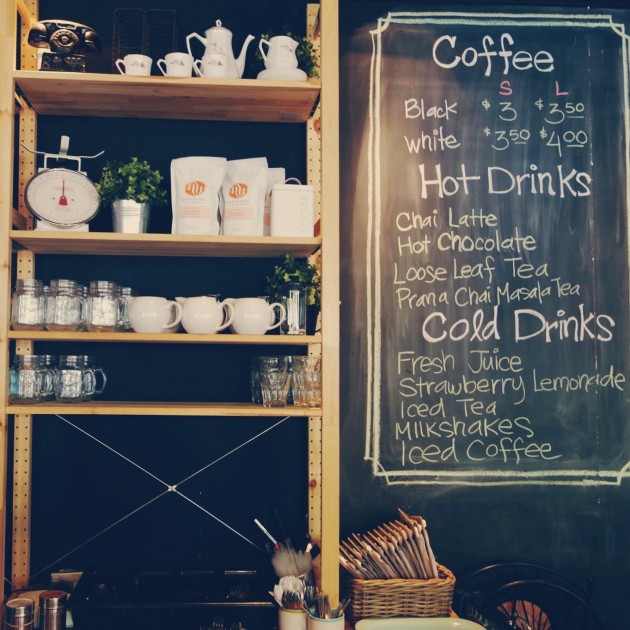 Coffee
S L
Black $3 $3.50
white $3.50 $4.00
Hot Drinks
Chai Latte
Hot Chocolate
Loose Leaf Tea
Prana Chai Masala Tea
Cold Drinks
Fresh Juice
Strawberry Lemonade
Iced Tea
Milkshakes
Iced Coffee